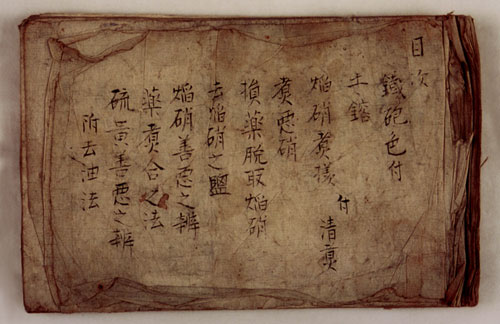 目次
鐵砲色付
土鎔
焔硝煑様 付 清煑
煑悪硝
損薬脱取焔硝
去焔硝之盬
焔硝善悪之辨
薬煑合之法
硫黄善悪之辨
附去油法